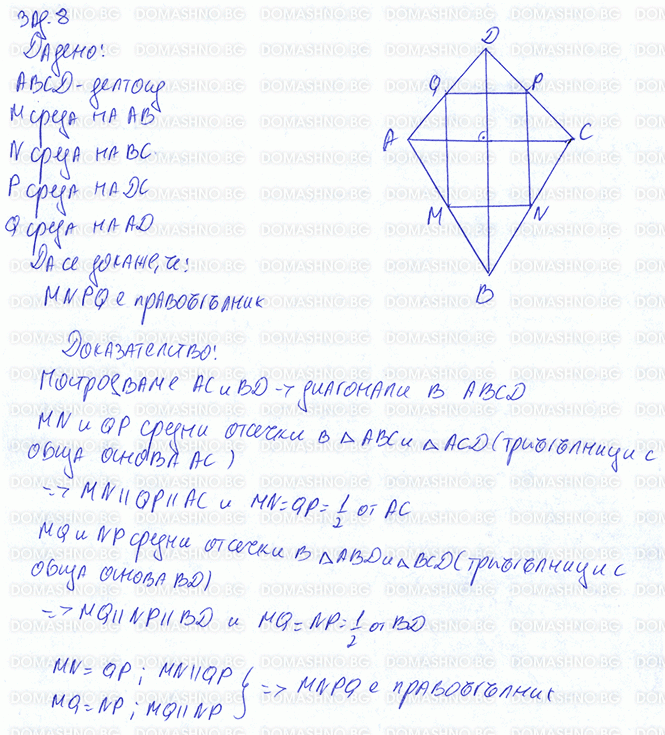 Зад. 8
Дадено:
ABCD - делтоид
M среда на AB
N среда на BC
P среда на DC
Q среда на AD
Да се докаже, че:
MNPQ е правоъгълник
Доказателство:
Построяваме AC и BD → диагонали в ABCD
MN и QP средни отсечки в △ABC и △ACD (триъгълници с
обща основа AC)
=> MN || QP || AC и MN = QP = 1/2 от AC
MQ и NP средни отсечки в △ABD и △BCD (триъгълници с
обща основа BD)
=> MQ || NP || BD и MQ = NP = 1/2 от BD
MN = QP ; MN || QP
MQ = NP ; MQ || NP } => MNPQ е правоъгълник
D
Q P
A C
M N
B
DOMASHNO.BG